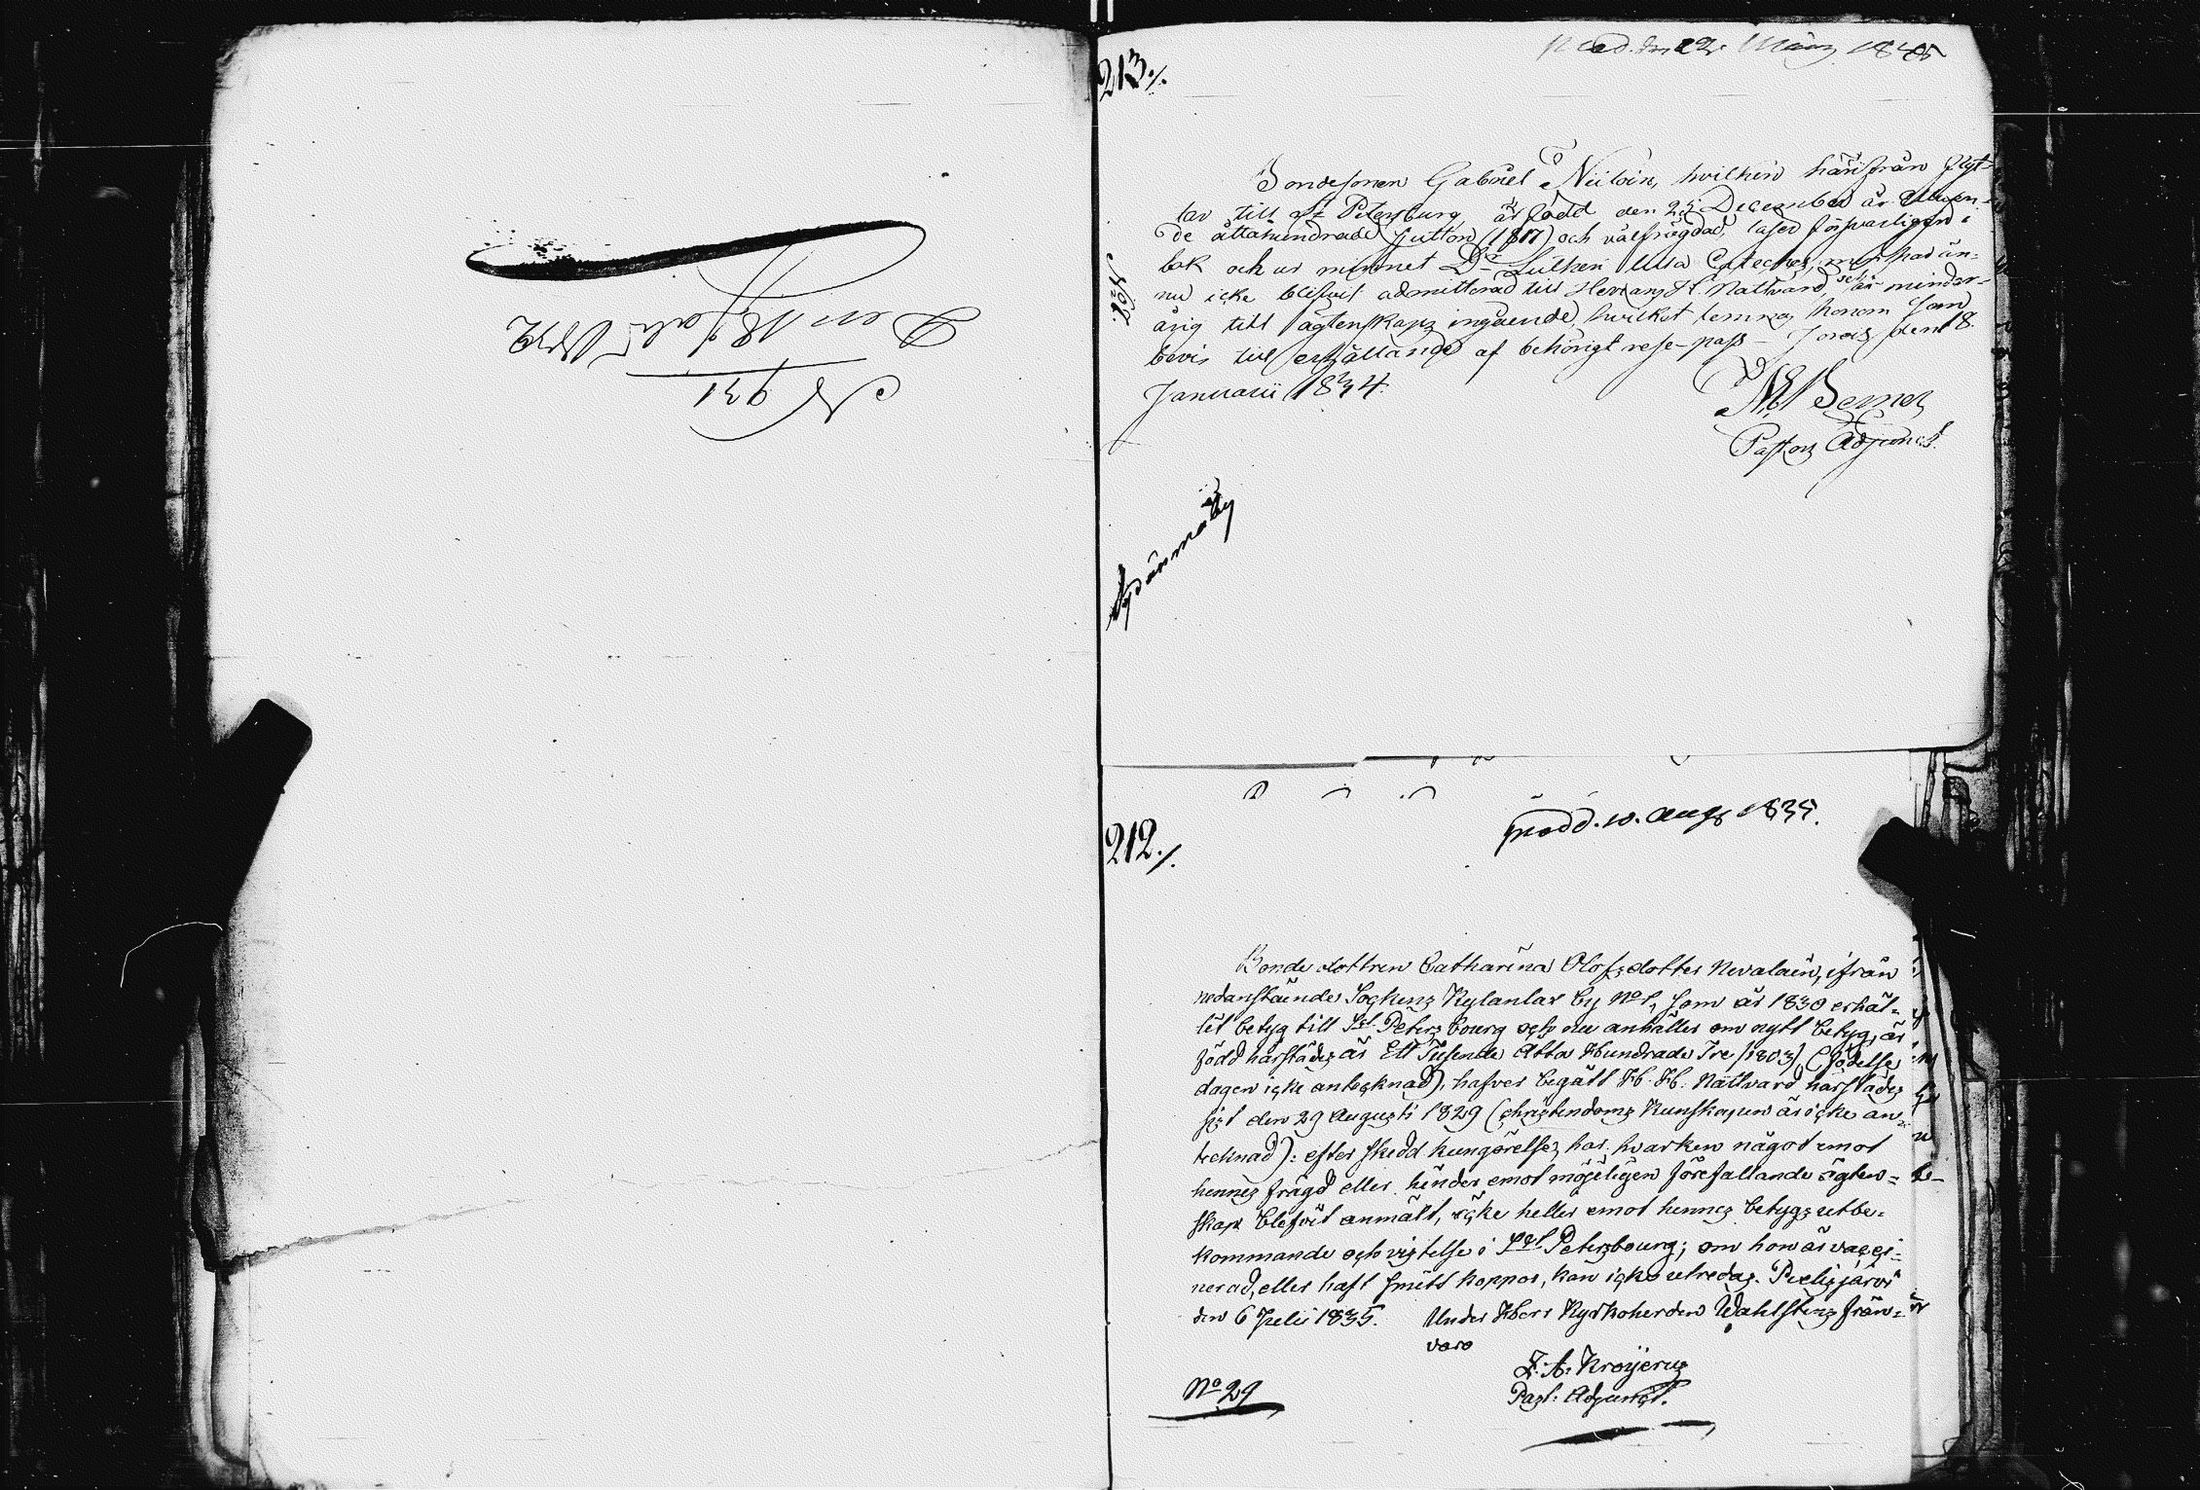 N 931
Den 18 Juli 1832
213./.
prod. den 22 März 1835
Bondesonen Gabriel Niiloin, hvilken härifrån flyt-
tar till St Petersburg, är född den 25 December år
de åttahundrade sjutton (1817) och välfrägdad, läser försvarligen i
bok och ur minnet Dr Lutheri lilla Cateches, men har än-
nu icke blifvit admitterad till Herrans H. Nattvard och är minder-
årig till ägtenskaps ingående, hvilket lemnas honom som
bevis till erhållande af behörigt rese-pass - Jorois den 18.
Januarii 1834.
Pastors Adjunct.
212./.
prod. 10. Aug 1835.
Bonde dottren Catharina Olofsdotter Nevalain, ifrån
nedanstående Sockens Kylanlax by No 1, som år 1830 erhål-
lit betyg till Sct Petersbourg och nu anhåller om nytt betyg, är
född härstädes år Ett Tusende Åtta Hundrade Tre (1803) (födelse
dagen icke antecknad), hafver begått H. H. Nattvard härstädes
sist den 29 Augusti 1829 (christendoms kunskapen är icke an-
tecknad): efter skedd kungörelse, har hvarken något emot
hennes frägd eller hinder emot möjeligen förefallande ägten-
skap blefvit anmält, icke heller emot hennes betygs utbe-
kommande och vistelse i Sct Petersbourg; om hon är vacci-
nerad, eller haft smitt koppor, kan icke utredas. Pielisjärvi
den 6 Julii 1835. Under Herr Kyrkoherden Wahlstens från-
varo
Z. A. Krogerus
Past: Adjunct.
No 29